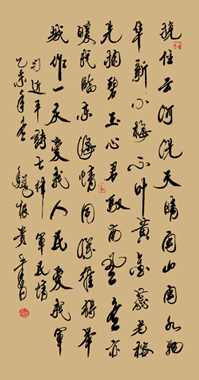 挽住云河洗天晴闽山闽水物
华新小梅正吐黄金蕊老榕
先掬碧玉心君驭南风冬亦
暖我临东海情同深难得举
城作一庆爱我人民爱我军
习近平诗七律 军民情
乙未年